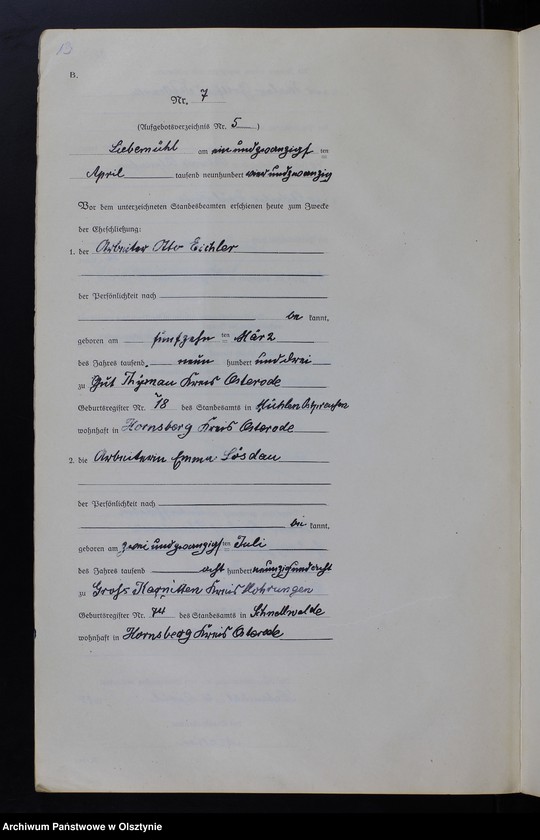 13
B.
Nr. 7
(Aufgebotsverzeichnis Nr. 5)
Liebemühl am ein und zwanzigsten
April tausend neunhundert vierundzwanzig
Vor dem unterzeichneten Standesbeamten erschienen heute zum Zwecke
der Eheschließung:
1. der Arbeiter Otto Eichler
der Persönlichkeit nach
be kannt,
geboren am fünfzehn ten März
des Jahres tausend neun hundert und drei
zu Gut Thyrnau Kreis Osterode
Geburtsregister Nr. 18 des Standesamts in Mühlen Ostpreußen
wohnhaft in Hornsberg Kreis Osterode
2. die Arbeiterin Emma Lösdau
der Persönlichkeit nach
be kannt,
geboren am zwei und zwanzigsten Juli
des Jahres tausend acht hundert neunzig und acht
zu Groß Karnitten Kreis Mohrungen
Geburtsregister Nr. 74 des Standesamts in Schnellwalde
wohnhaft in Hornsberg Kreis Osterode
Archiwum Państwowe w Olsztynie